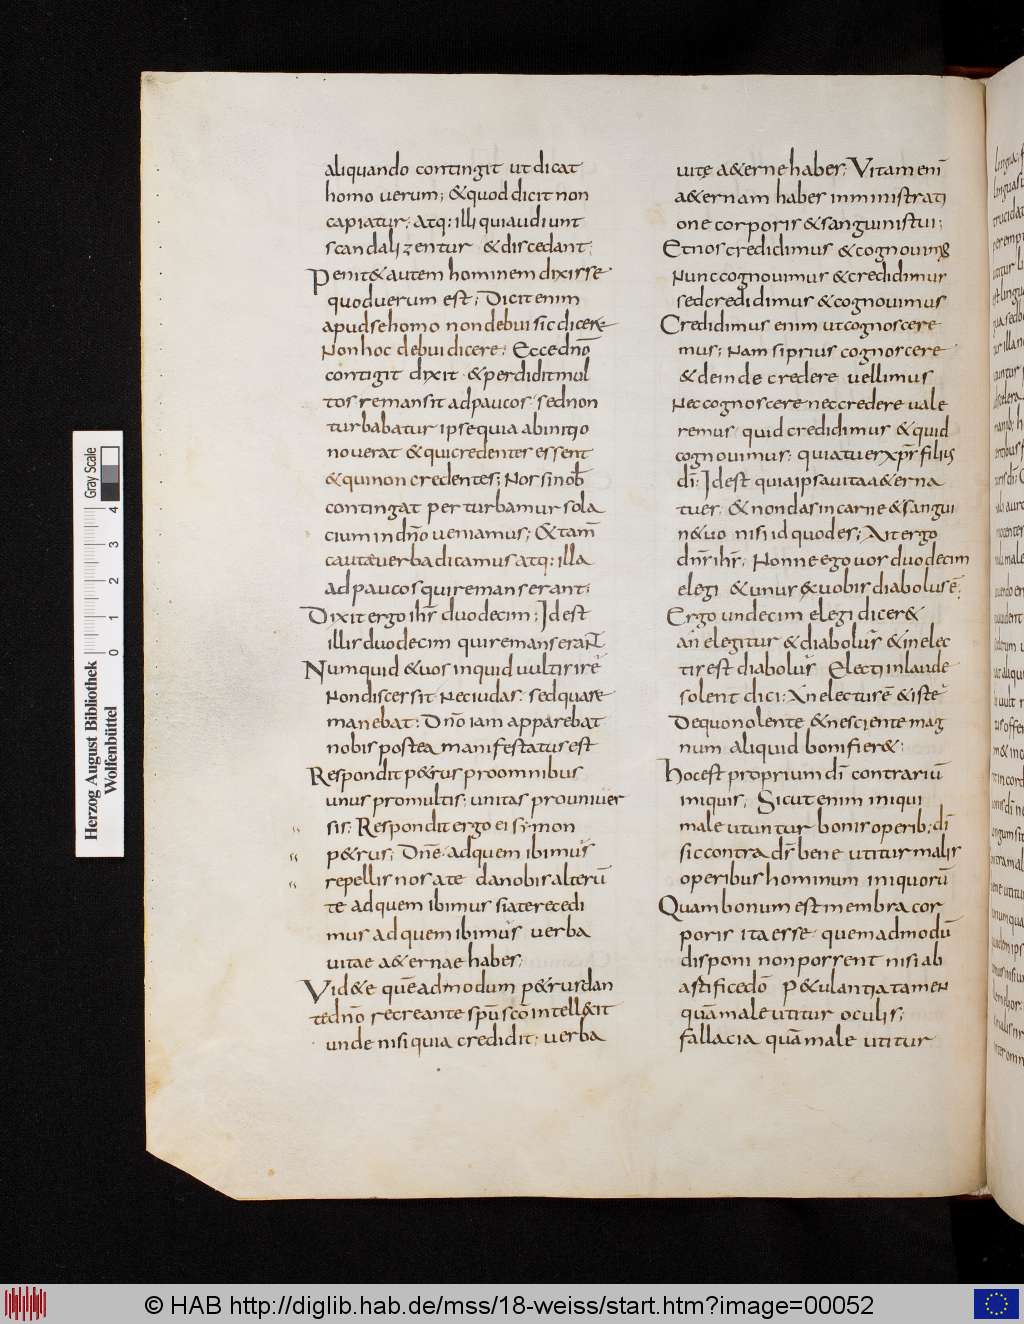 aliquando contingit ut dicat
homo uerum; &quod dicit non
capiatur; atq: illi qui audiunt
scandalizentur &discedant;
Penit& autem hominem dixisse
quod uerum est; Dicit enim
apud se homo non debui sic dicere
Non hoc debui dicere; Ecce dnō
contigit dixit &perdidit mul
tos remansit ad paucos sed non
turbabatur ipse quia ab initio
nouerat & qui credentes essent
&qui non credentes; Nos si nob̄
contingat perturbamur sola
cium in dn̄o ueniamus; &tam̄
caute uerba dicamus atq: illa
ad paucos qui remanserant;
Dixit ergo ihs̄ duodecim; Idest
illis duodecim qui remanserant̄
Numquid &uos inquid uultis ire
Non discessit nec iudas sed quare
manebat; Dn̄o iam apparebat
nobis postea manifestatus est
Respondit p&rus pro omnibus
unus pro multis; unitas pro uniuer
sis; Respondit ergo ei symon
p&rus; Dn̄e ad quem ibimus
repellis nos a te da nobis alterū
te ad quem ibimus si a te recedi
mus ad quem ibimus uerba
uitae a&ernae habes;
Vid&e quēadmodum p&rus dan
te dn̄o recreante sp̄u sc̄o intell&it
unde nisi quia credidit; uerba
uitę a&erne habes; Vitam eni̅
a&ernam habes in ministrati
one corporis &sanguinis tui;
Et nos credidimus &cognouimus
Nunc cognouimus &credidimus
sed credidimus &cognouimus
Credidimus enim ut cognoscere
mus; Nam si prius cognoscere
&deinde credere uellimus
Nec cognoscere nec credere uale
remus quid credidimus &quid
cognouimus; quia tu es xpr̄ filius
di̅; Idest quia ipsa uita a&erna
tu es; & non das in carne &sangui
n&uo nisi id quod es; Ait ergo
dnr̄ ihr̄; Nonne ego uos duodecim
elegi &unus &uobis diabolus ē;
Ergo undecim elegi dicer&
an̄ elegitur &diabolus &in elec
tis est diabolus Electi in laude
solent dici; An̄ electus ē &iste
De quo nolente &nesciente mag
num aliquid boni fier&;
Hoc est proprium di̅ contrariū
iniquis; Sicut enim iniqui
male utuntur bonis operib; di̅
sic contra ds̄ bene utitur malis
operibus hominum iniquorū
Quam bonum est membra cor
poris ita esse quemadmodū
disponi non possent nisi ab
artifice dō P&ulantia tamen
quā male utitur oculis;
fallacia quā male utitur
Herzog August Bibliothek
Wolfenbüttel
0 1 2 3 4
Gray Scale
© HAB http://diglib.hab.de/mss/18-weiss/start.htm?image=00052